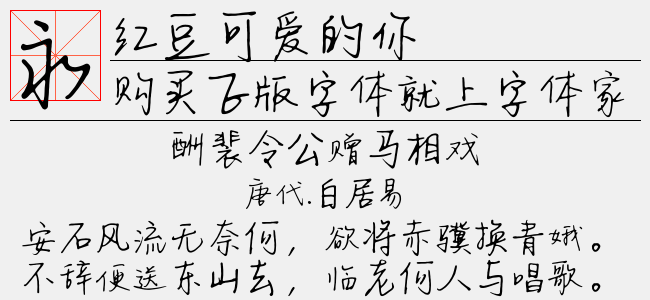 永
红豆可爱的你
购买正版字体就上字体家
酬裴令公赠马相戏
唐代.白居易
安石风流无奈何，欲将赤骥换青娥。
不辞便送东山去，临老何人与唱歌。